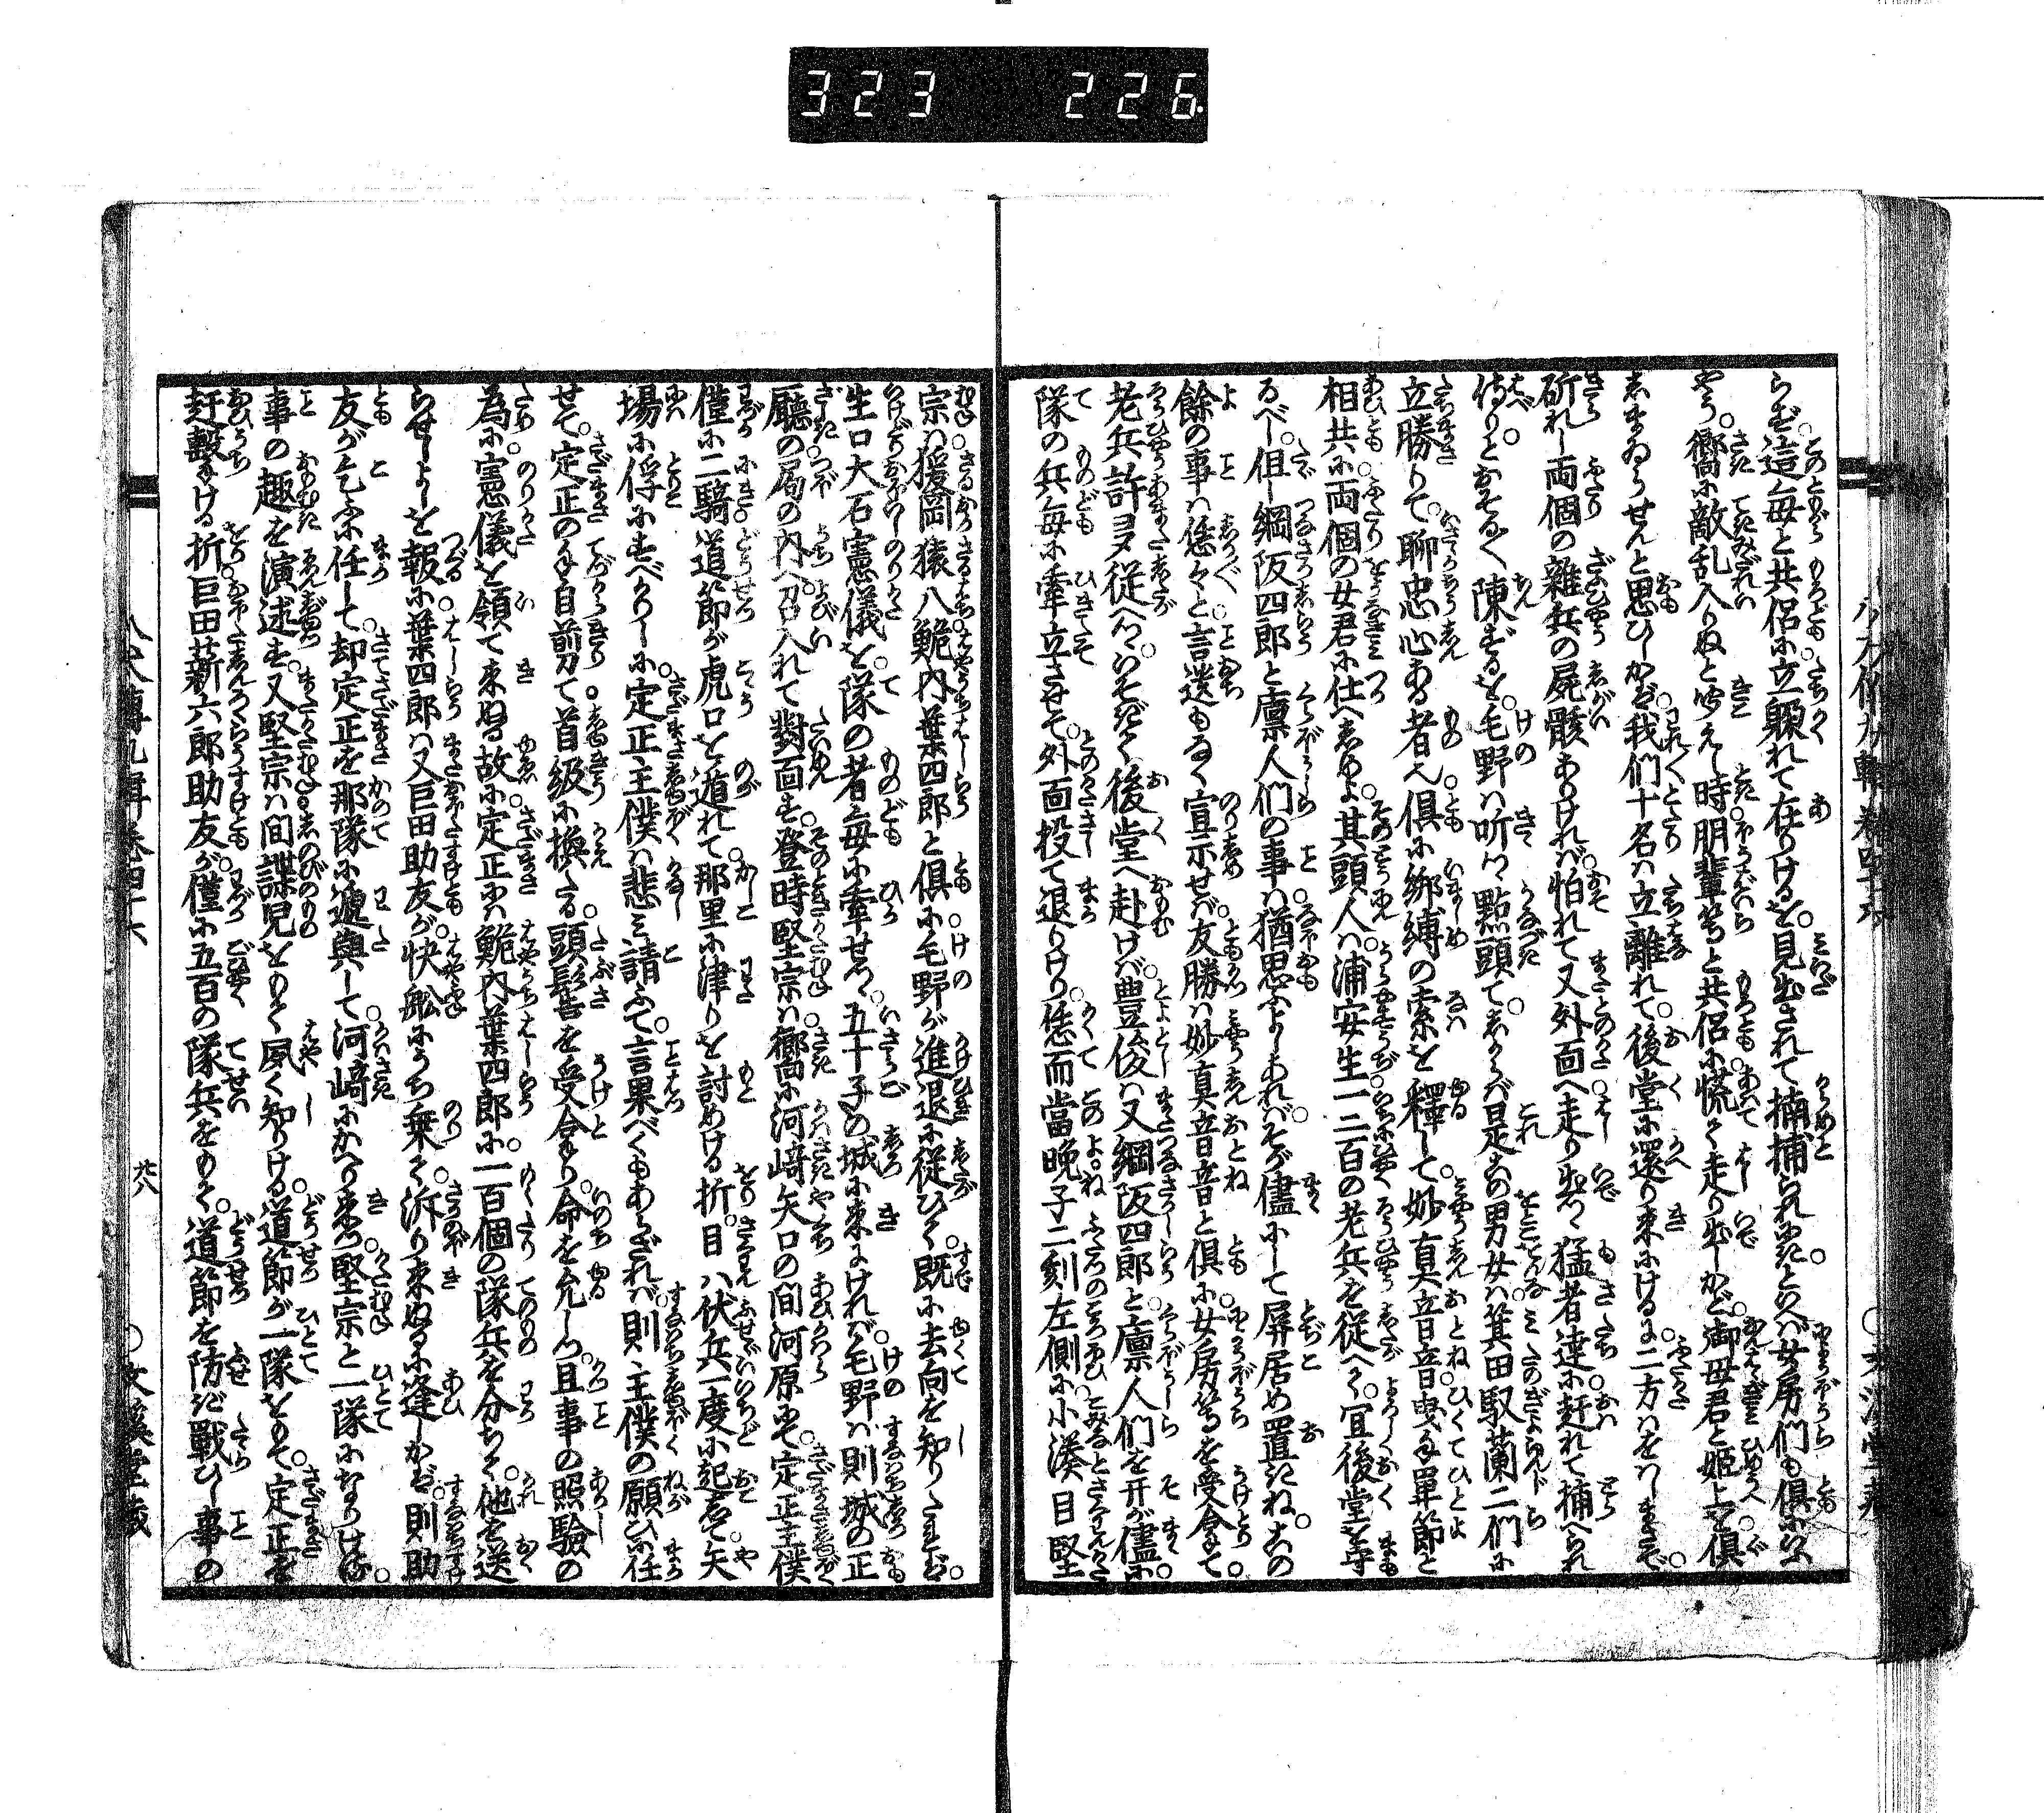 323 226
らず。這毎と共侶に、立躱れて在りけるを、見出されて搦捕られにき」といへば、女房們も倶にいふ
やう、「嚮に敵乱入りぬと聞えし時、朋輩等と共侶に、慌て走り出しかど、御母君と姫上を、倶
しまゐらせんと思ひしかば、我們十名は立離れて、後堂に還り来にけるに、二方はをはしまさで、
斫れし両個の雑兵の屍骸ありければ、怕れて又外面へ走り出て、猛者達に赶れて捕へられ
侍りき」とおそる〳〵陳ずるを、毛野は听つゝ點頭て、「しからば是等の男女は、箕田馭蘭二們に
立勝りて、聊忠心ある者也。倶に綁縛の索を釋して、妙真、音音、曳手、單節と
相共に、両個の女君に仕へしめよ。其頭人は浦安生、一二百の老兵を従へて、宜後堂を守
るべし。但し綱阪四郎と廩人們の事は、猶思ふよしあれば、そが儘にして屏居め置きね。この
餘の事は恁々」と言遺もなく宣示せば、友勝は妙真音音と倶に、女房等を受合て、
老兵許多従へつゝ、いそがはしく後堂へ赴けば、豊俊は又綱阪四郎と、廩人們を开が儘に、
隊の兵毎に牽立させて、外面投て退りけり。恁而當晩子二刻左側に、小湊目堅
宗は、猨岡猿八、鮠内葉四郎と倶に、毛野が進退に従ひて、既に去向を知りたれば、
生口大石憲儀を、隊の者毎に牽せつゝ、五十子の城に来にければ、毛野は則城の正
廳の局の内へ、召入れて對面す。登時堅宗は、嚮に河﨑矢口の間、河原にて、定正主僕
僅に二騎、道節が虎口を遁れて、那里に津りを討めける折、目は伏兵一度に起して、矢
場に俘にすべかりしに、定正主僕は悲み請ふて、言果べくもあらざれば、則主僕の願ひに任
せて、定正の手自剪て首級に換たる、頭髻を受合り命を允しつ、且事の照驗の
為に、憲儀を領て来ぬる故に、定正には鮠内葉四郎に、一百個の隊兵を分ちて、他を送
らせしよしを報に、葉四郎は又巨田助友が、快舩にうち乗て、泝り来ぬるに逢しかば、則助
友が乞ふに任して、却定正を那隊に逓與して、河﨑にかへり来つ、堅宗と一隊になりける
事の趣を演述す。又堅宗は間諜児をもて、夙く知りける、道節が一隊をもて、定正を
赶撃ける折、巨田薪六郎助友が、僅に五百の隊兵をもて、道節を防ぎ戰ひし事の
八犬傳九輯巻四十六
廿八
○文溪堂蔵